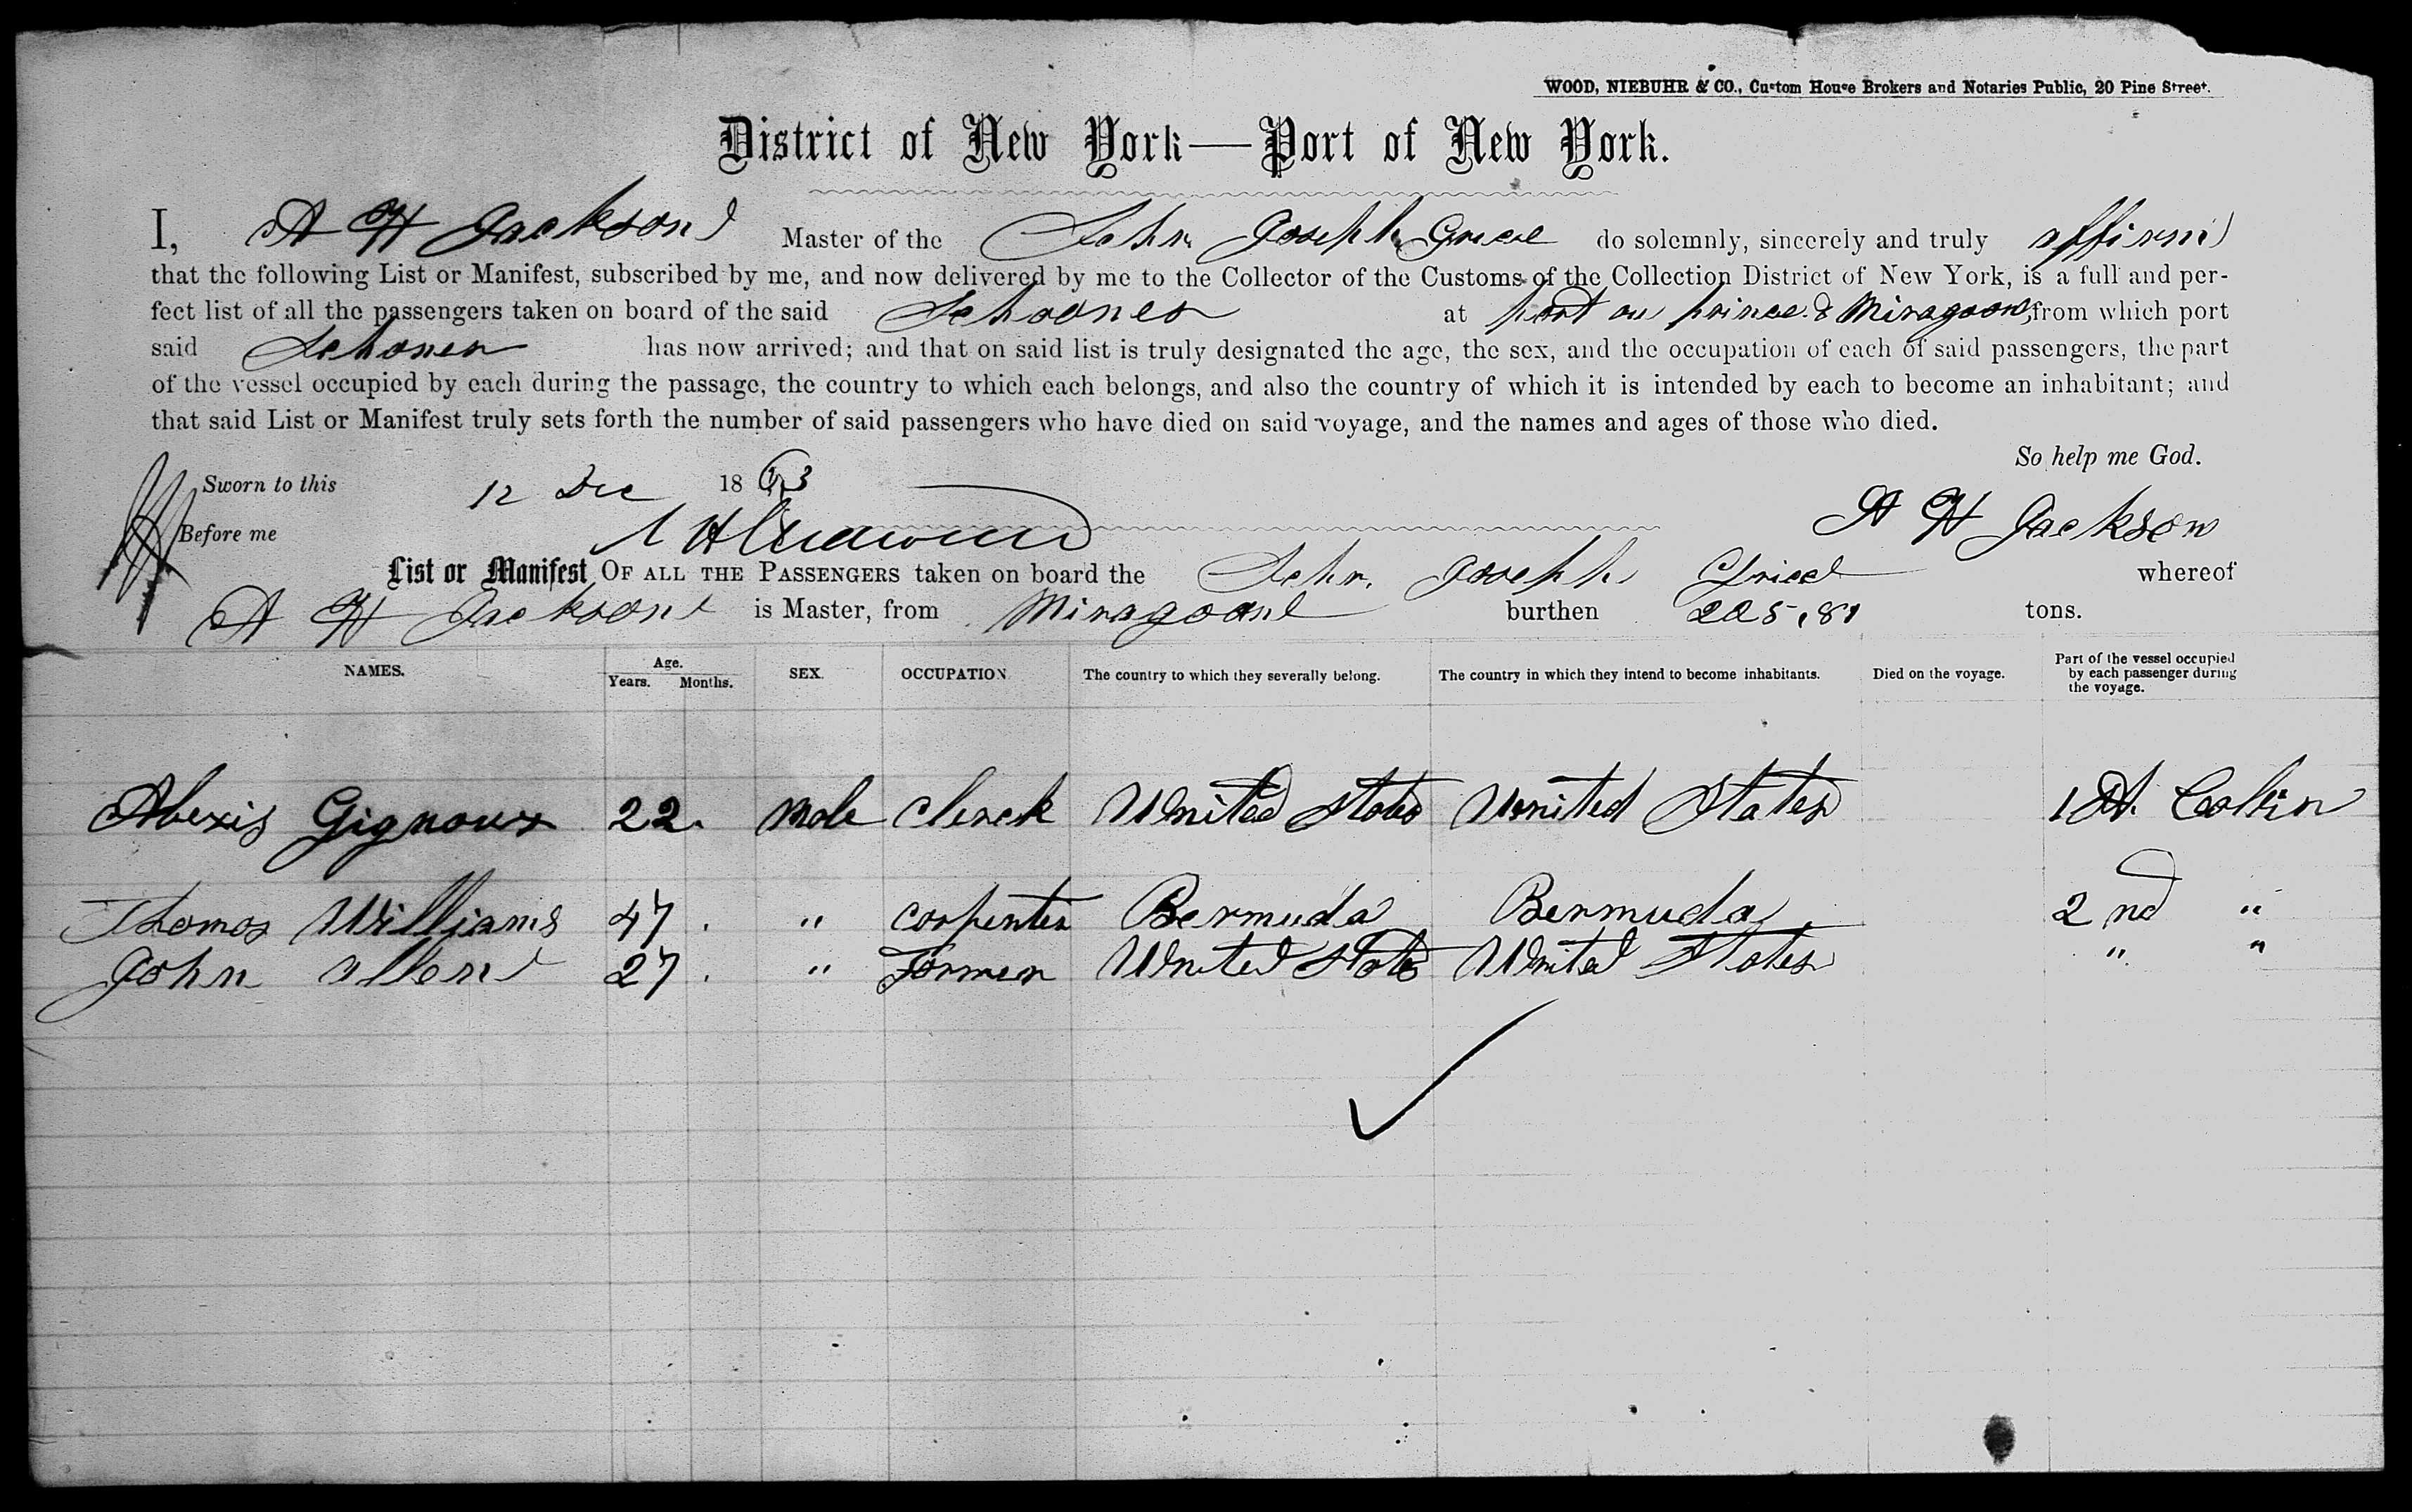 WOOD, NIEBUHR & CO., Custom House Brokers and Notaries Public, 20 Pine Street.
District of New York—Port of New York.
I, A H Jackson Master of the Schr. Joseph Grice do solemnly, sincerely and truly affirm
that the following List or Manifest, subscribed by me, and now delivered by me to the Collector of the Customs of the Collection District of New York, is a full and per-
fect list of all the passengers taken on board of the said Schooner at port au prince & Miragoane from which port
said Schoner has now arrived; and that on said list is truly designated the age, the sex, and the occupation of each of said passengers, the part
of the vessel occupied by each during the passage, the country to which each belongs, and also the country of which it is intended by each to become an inhabitant; and
that said List or Manifest truly sets forth the number of said passengers who have died on said voyage, and the names and ages of those who died.
So help me God.
Sworn to this 12 Dec 1863
A H Jackson
Before me
List or Manifest OF ALL THE PASSENGERS taken on board the Schr. Joseph Grice whereof
A H Jackson is Master, from Miragoane burthen 205,81 tons.
NAMES. Age. Years. Months. SEX. OCCUPATION. The country to which they severally belong. The country in which they intend to become inhabitants. Died on the voyage. Part of the vessel occupied by each passenger during the voyage.
Alexis Gignoux 22. Male Clerck United States United States 1st. Cabin
Thomas Williams 47. " carpenter Bermuda Bermuda 2nd "
John Allen 27. " Farmer United States United States " "